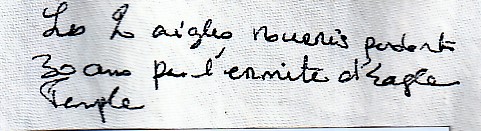 Les 2 aigles nourris pendant
30 ans par l'ermite d'Eagle
Temple